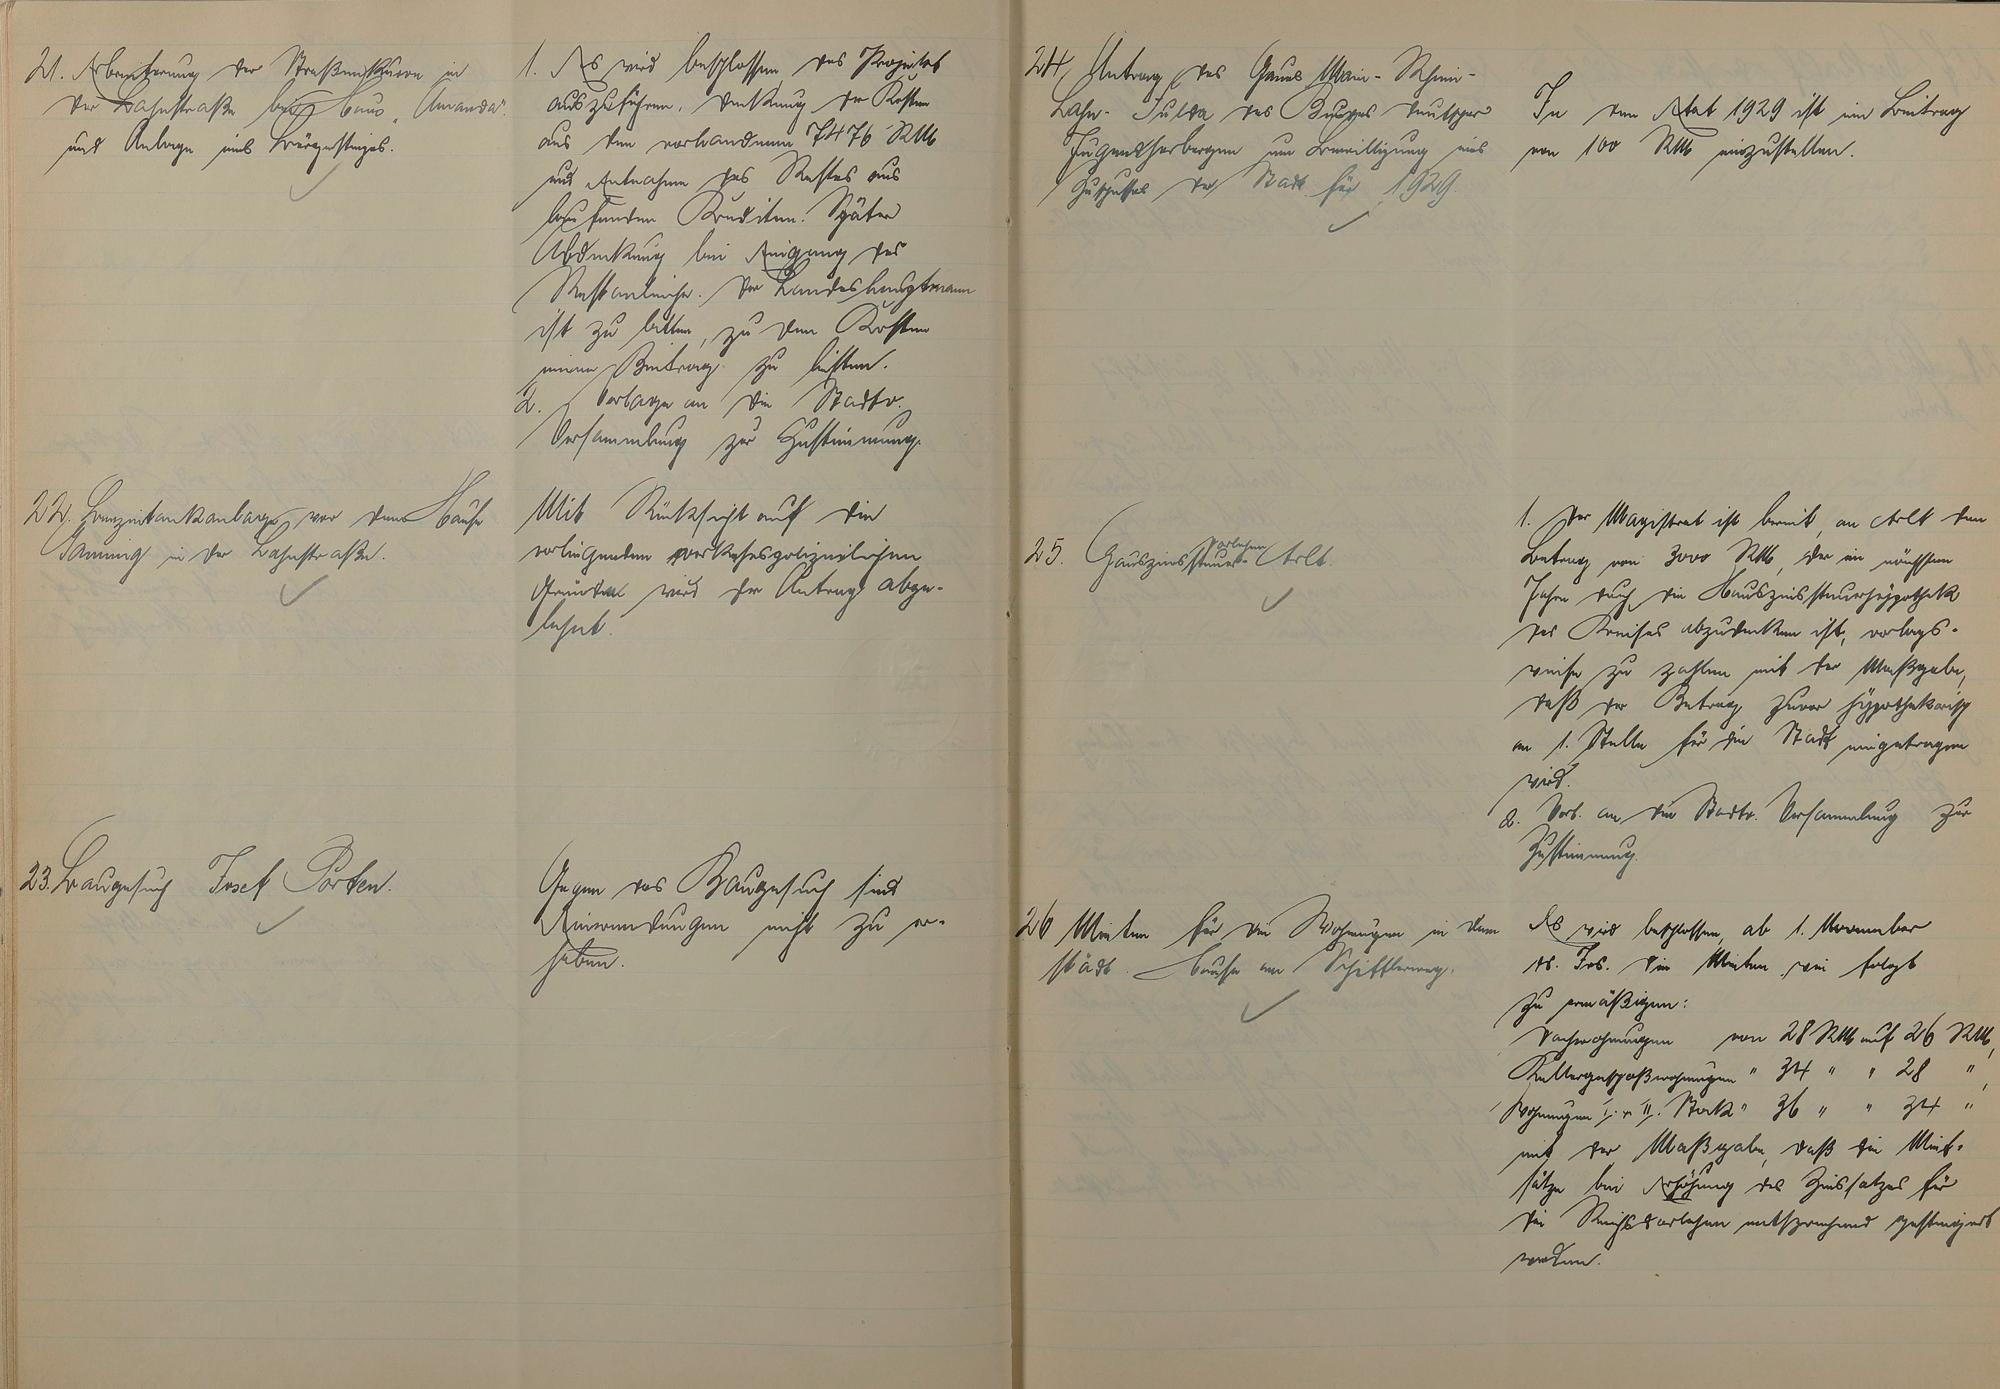 21. Verbreiterung der Straßenkurve in
der Lahnstraße beim Haus „Amanda"
und Anlage eines Bürgersteiges.
1. Es wird beschlossen das Projekt
auszuführen. Deckung der Kosten
aus den vorhandenen 7476 RM
und Entnahme des Restes aus
laufenden Krediten. Später
Abdeckung bei Eingang der
Restanleihe. Der Landeshauptmann
ist zu bitten, zu den Kosten
einen Beitrag zu leisten.
2. Vorlage an die Stadtv.
Versammlung zur Zustimmung.
22. Benzintankanlage vor dem Hause
in der Lahnstraße.
Mit Rücksicht auf die
vorliegenden verkehrspolizeilichen
Gründe wird der Antrag abge-
lehnt.
23. Baugesuch Josef Porten.
Gegen das Baugesuch sind
Einwendungen nicht zu er-
heben.
24, Antrag des Gaues Main-Rhein-
Lahn-Fulda des Bundes deutscher
Jugendherbergen um Bewilligung eines
Zuschusses der Stadt für 1929.
In den Etat 1929 ist ein Beitrag
von 100 RM einzustellen.
25. Hauszinssteuer-darlehen Arlt.
1. Der Magistrat ist bereit, an Arlt den
Betrag von 3000 RM, der im nächsten
Jahre durch die Hauszinssteuerhypothek
des Kreises abzudecken ist, vorlags-
weise zu zahlen mit der Maßgabe,
daß der Betrag zuvor hypothekarisch
an 1. Stelle für die Stadt eingetragen
wird.
2. Vorl. an die Stadtv. Versammlung zur
Zustimmung.
26 Mieten für die Wohnungen in dem
städt. Hause am Schifflerweg.
Es wird beschlossen, ab 1. November
ds. Jrs. die Mieten wie folgt
zu ermäßigen:
Dachwohnungen von 28 RM auf 26 RM,
Kellergeschoßwohnungen " 34 " " 28 ",
Wohnungen I. u. II. Stock " 36 " " 34 "
mit der Maßgabe, daß die Miet-
sätze bei Erhöhung des Zinssatzes für
die Reichsdarlehen entsprechend gesteigert
werden.